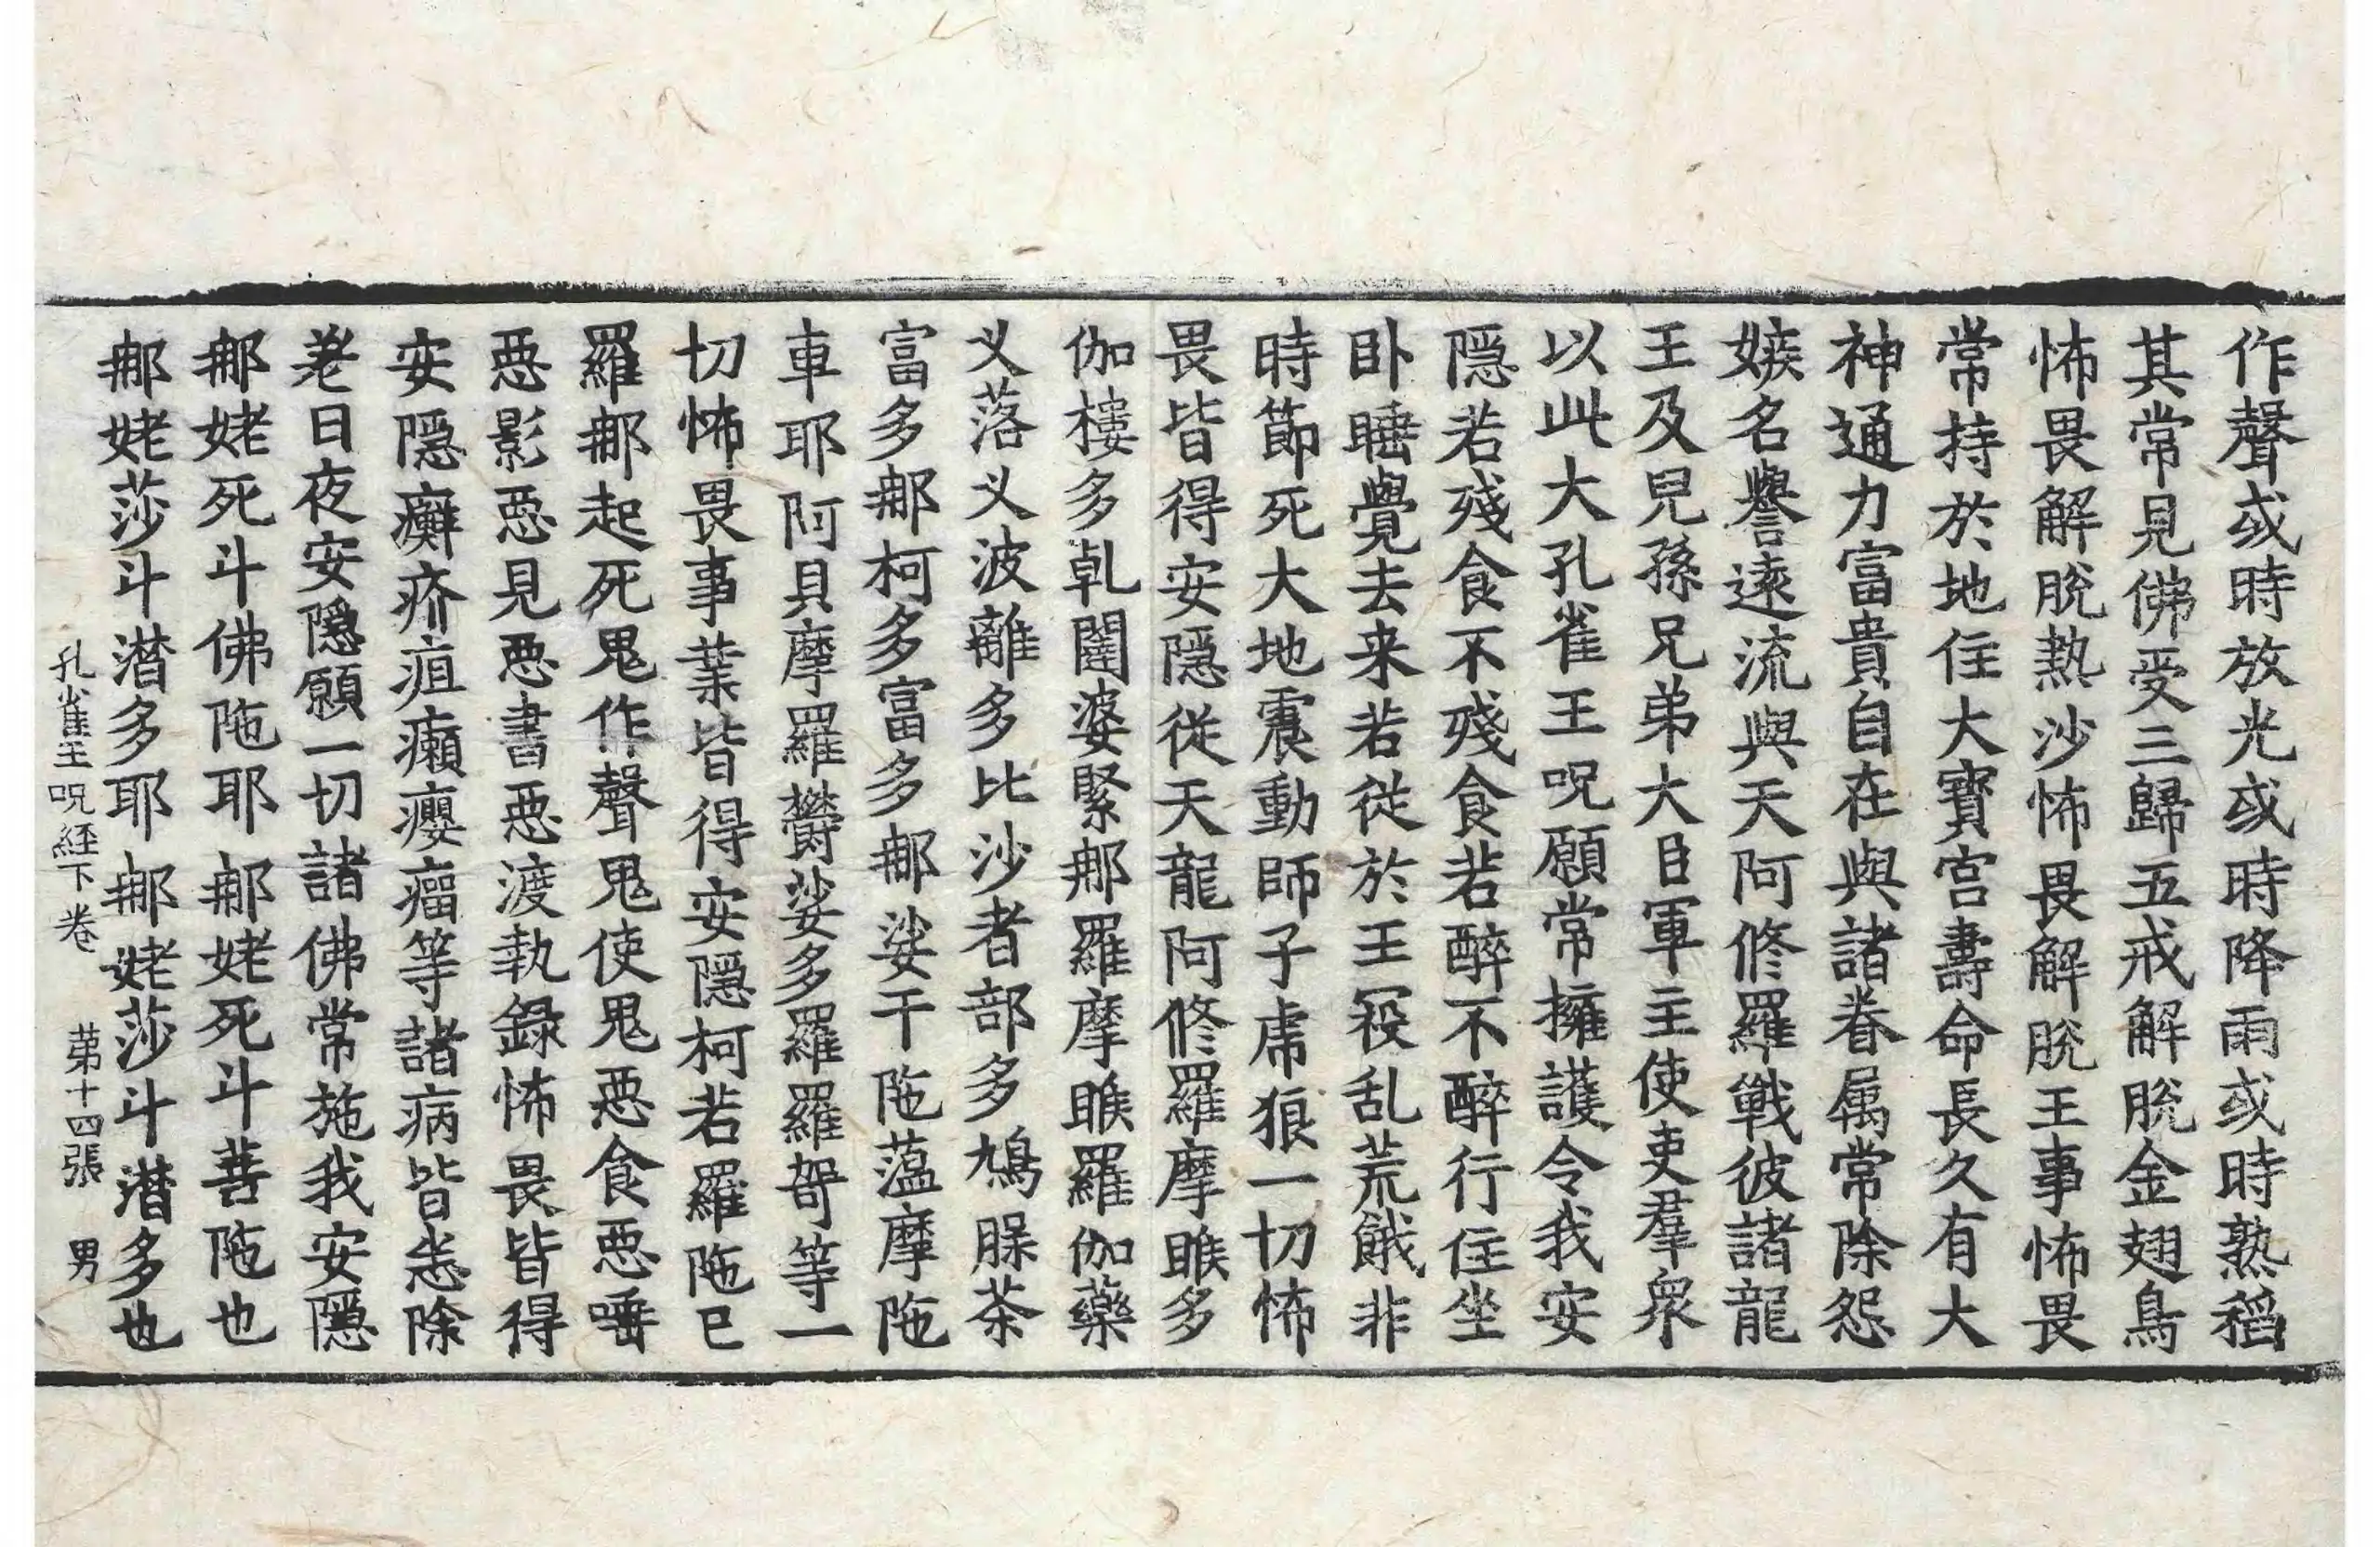 作聲或時放光或時降雨或時熟稻
其常見佛受三歸五戒解脫金翅鳥
怖畏解脫熱沙怖畏解脫王事怖畏
常持於地住大寶宮壽命長久有大
神通力富貴自在與諸眷属常除怨
嫉名譽遠流與天阿修羅戰彼諸龍
王及兒孫兄弟大臣軍主使吏羣衆
以此大孔雀王呪願常擁護令我安
隱若殘食不殘食若醉不醉行住坐
卧睡覺去来若從於王役乱荒餓非
時節死大地震動師子虎狼一切怖
畏皆得安隱從天龍阿修羅摩睺多
伽樓多乹闥婆緊那羅摩睺羅伽藥
义落义波離多比沙者部多鳩脲茶
富多那柯多富多那娑干陁薀摩陁
車耶阿貝摩羅欝娑多羅羅哿等一
切怖畏事業皆得安隱柯若羅陁已
羅那起死鬼作聲鬼使鬼惡食惡唾
惡影惡見惡書惡渡執錄怖畏皆得
安隱癬疥疽癩癭瘤等諸病皆恙除
差日夜安隱願一切諸佛常施我安隱
那姥死斗佛陁耶那姥死斗菩陁也
那姥莎斗潛多耶那姥莎斗潛多也
孔雀王呪経下卷 苐十四張 男